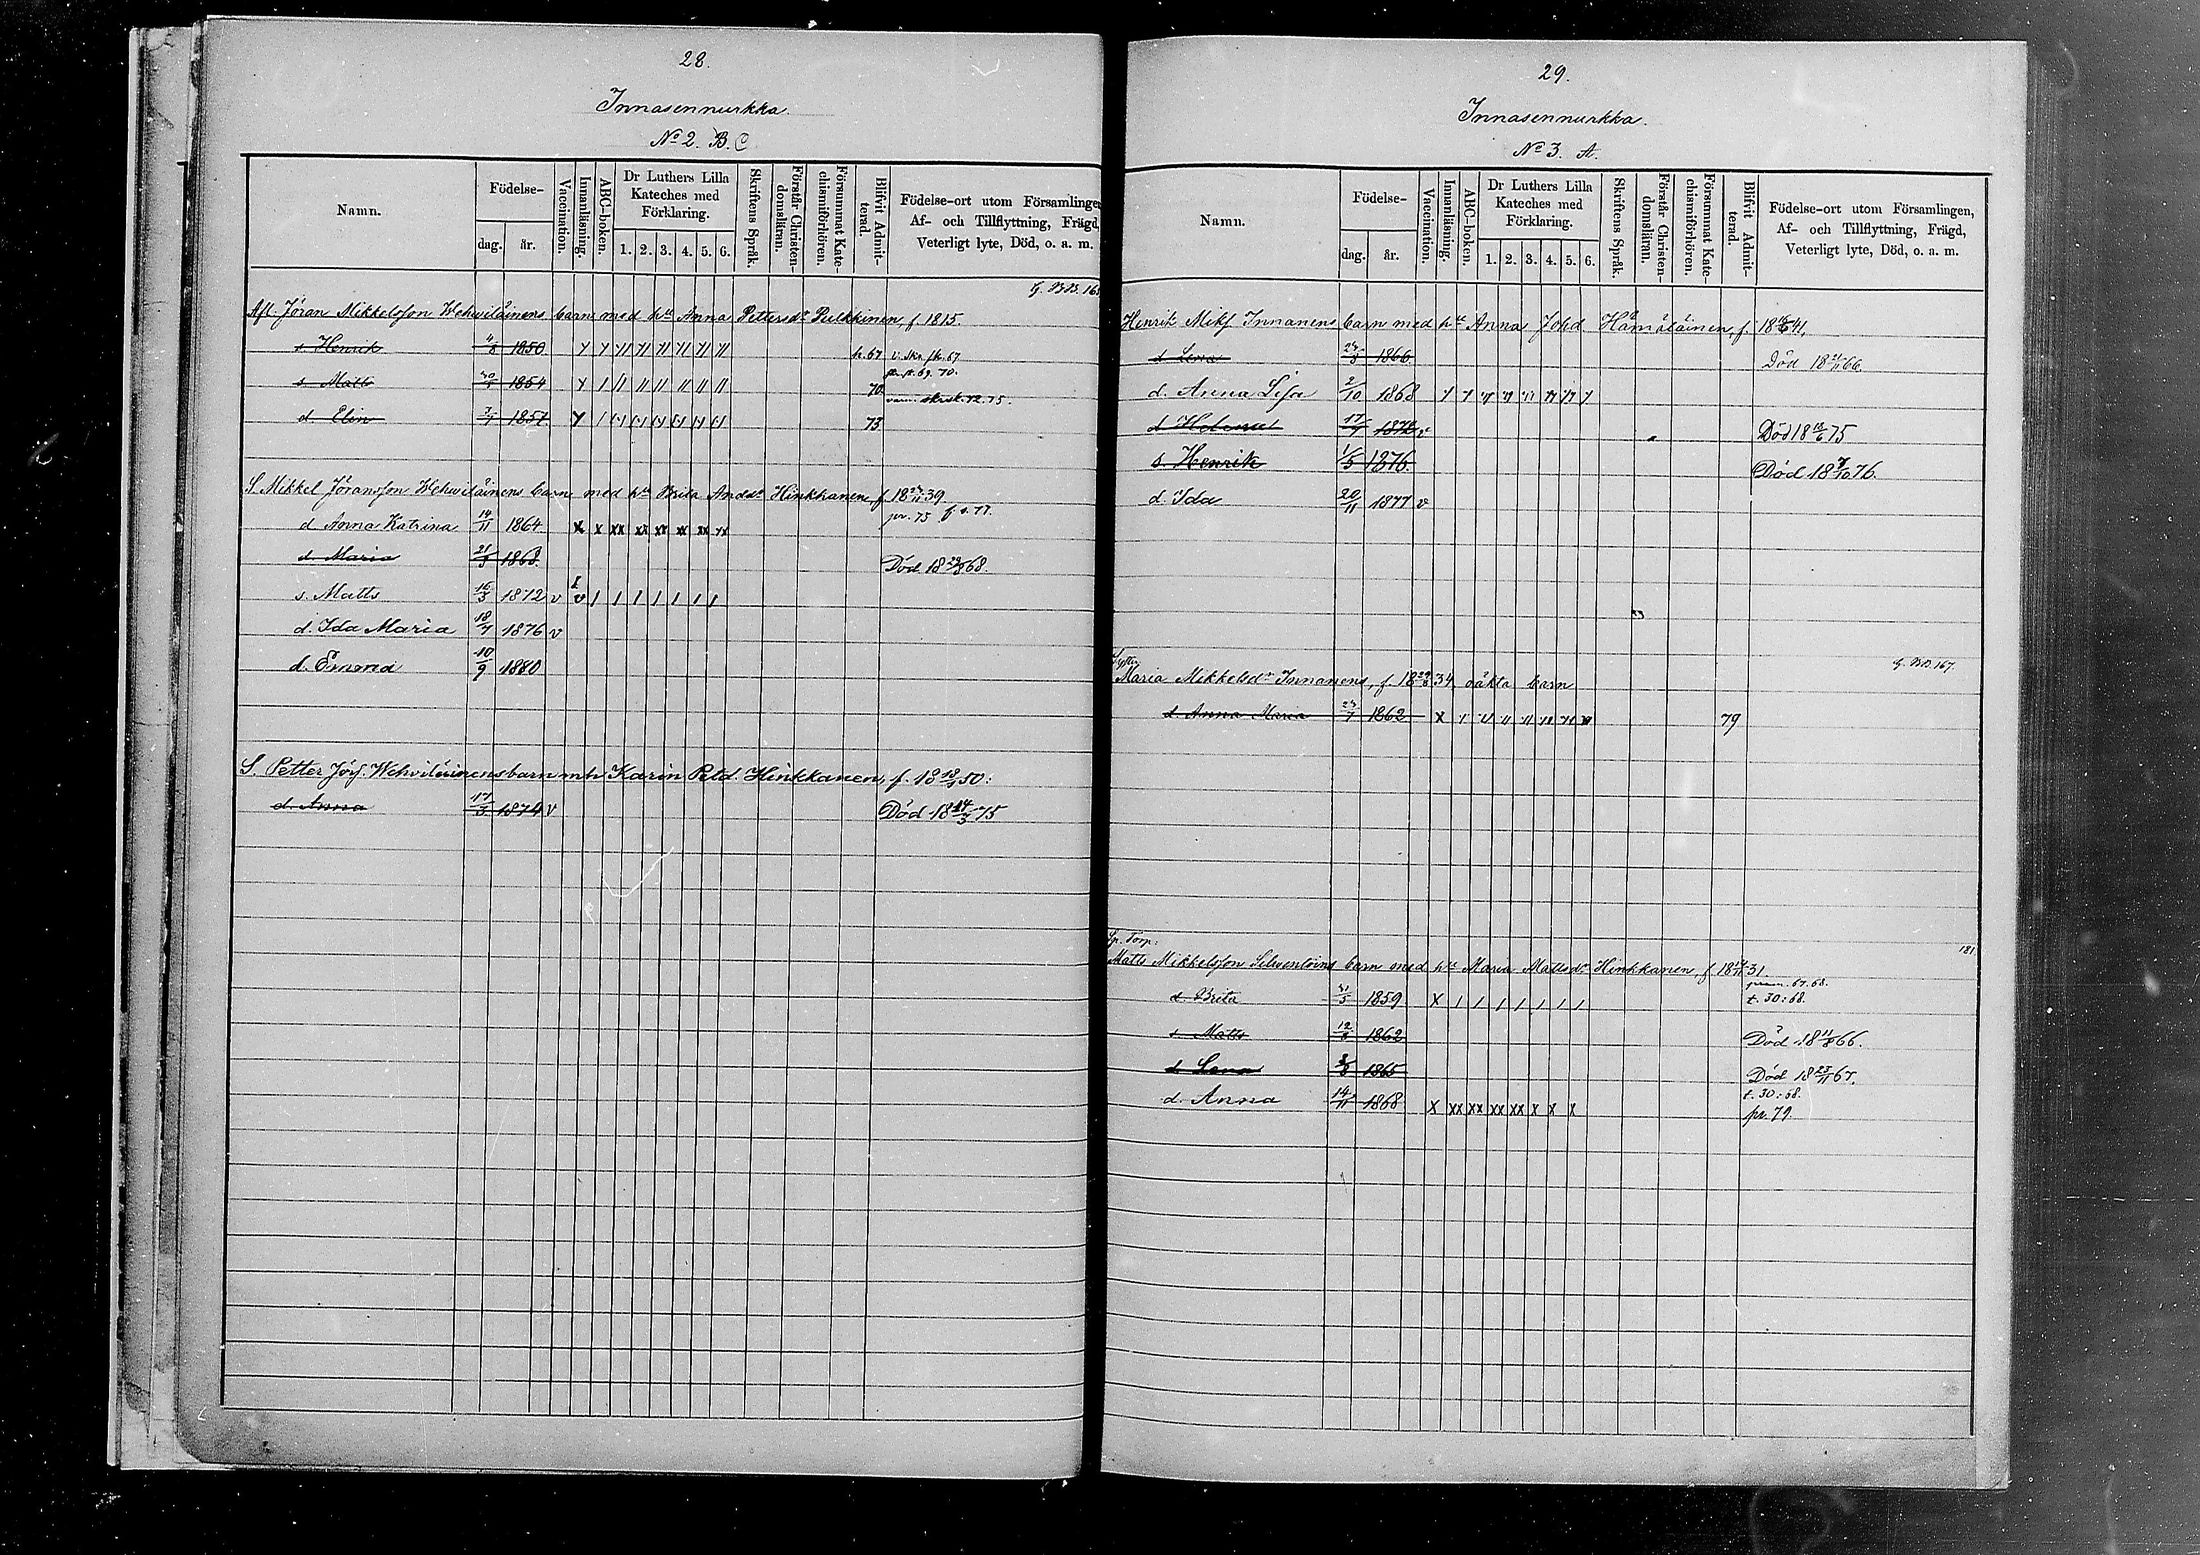 28.
Innasennurkka.
No 2. B. C
Namn.
Födelse-
dag. år.
Vaccination.
Innanläsning.
ABC-boken.
Dr Luthers Lilla
Kateches med
Förklaring.
1. 2. 3. 4. 5. 6.
Skriftens Språk.
Förstår Christen-
domsläran.
Försummat Kate-
chismiförhören.
Blifvit Admit-
terad.
Födelse-ort utom Församlingen
Af- och Tillflyttning, Frägd,
Veterligt lyte, Död, o. a. m.
Afl. Jöran Mikkelsson Wehviläinens barn med hu Anna Pettersdr Pulkkinen, f 1815.
s Henrik 4/8 1850 h. 67
s. Matts 1854 70
d Elin 1857 73
S. Mikkel Jöransson Wehviläinens barn med hu Brita Anddr Hinkkanen, f 18 39
pr. 75 f s. 77.
d Anna Katrina 14/11 1864 x x xx xx xx xx xx xx
d. Maria 1868. Död 18 68.
s. Matts 15/3 1872 v v / / / / / / /
d. Ida Maria 18/7 1876 v
d. Emma 10/9 1880
S. Petter Jörs. Wehviläinens barn m h Karin Petd. Hinkkanen, f. 18 50:
d. Anna 17/3 1874 v Död 18 14/3 75
29.
Innasennurkka.
No 3. A.
Namn.
Födelse-
dag. år.
Vaccination.
Innanläsning.
ABC-boken.
Dr Luthers Lilla
Kateches med
Förklaring.
1. 2. 3. 4. 5. 6.
Skriftens Språk.
Förstår Christen-
domsläran.
Försummat Kate-
chismiförhören.
Blifvit Admit-
terad.
Födelse-ort utom Församlingen,
Af- och Tillflyttning, Frägd,
Veterligt lyte, Död, o. a. m.
Henrik Miks Innanens barn med hu Anna Johd Hämäläinen, f. 18 41,
d Lena 1866 Död 18 66.
d. Anna Lisa 2/10 1868
d Helena v Död 18 75
s. Henrik 1/5 1876 Död 18 76.
d. Ida 20/11 1877 v
G. BB. 167.
Maria Mikkelsdr Innanens, f. 18 34, oäkta barn
d. Anna Maria 1862 79
181
Sp. Torp:
Matts Mikkelsson barn med hu Maria Mattsdr Hinkkanen, f 18 31.
67. 68.
d. Brita 31/5 1859 x / / / / / / / t. 30: 68.
s Matts 12/8 1862 Död 18 11/8 66.
d. 1865 Död 18 23/11 67.
t. 30: 68.
d. Anna 14/11 1868 x xx xx xx xx x x x pr. 79.